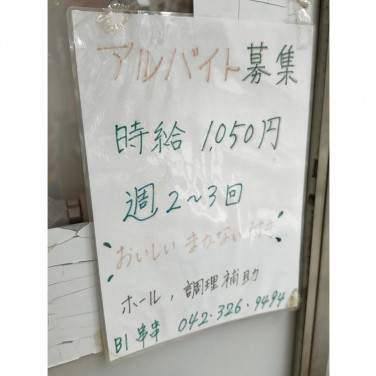 アルバイト募集
時給 1,050円
週2~3回
おいしいまかない付き
ホール,調理補助
B1 串串 042.326.9494